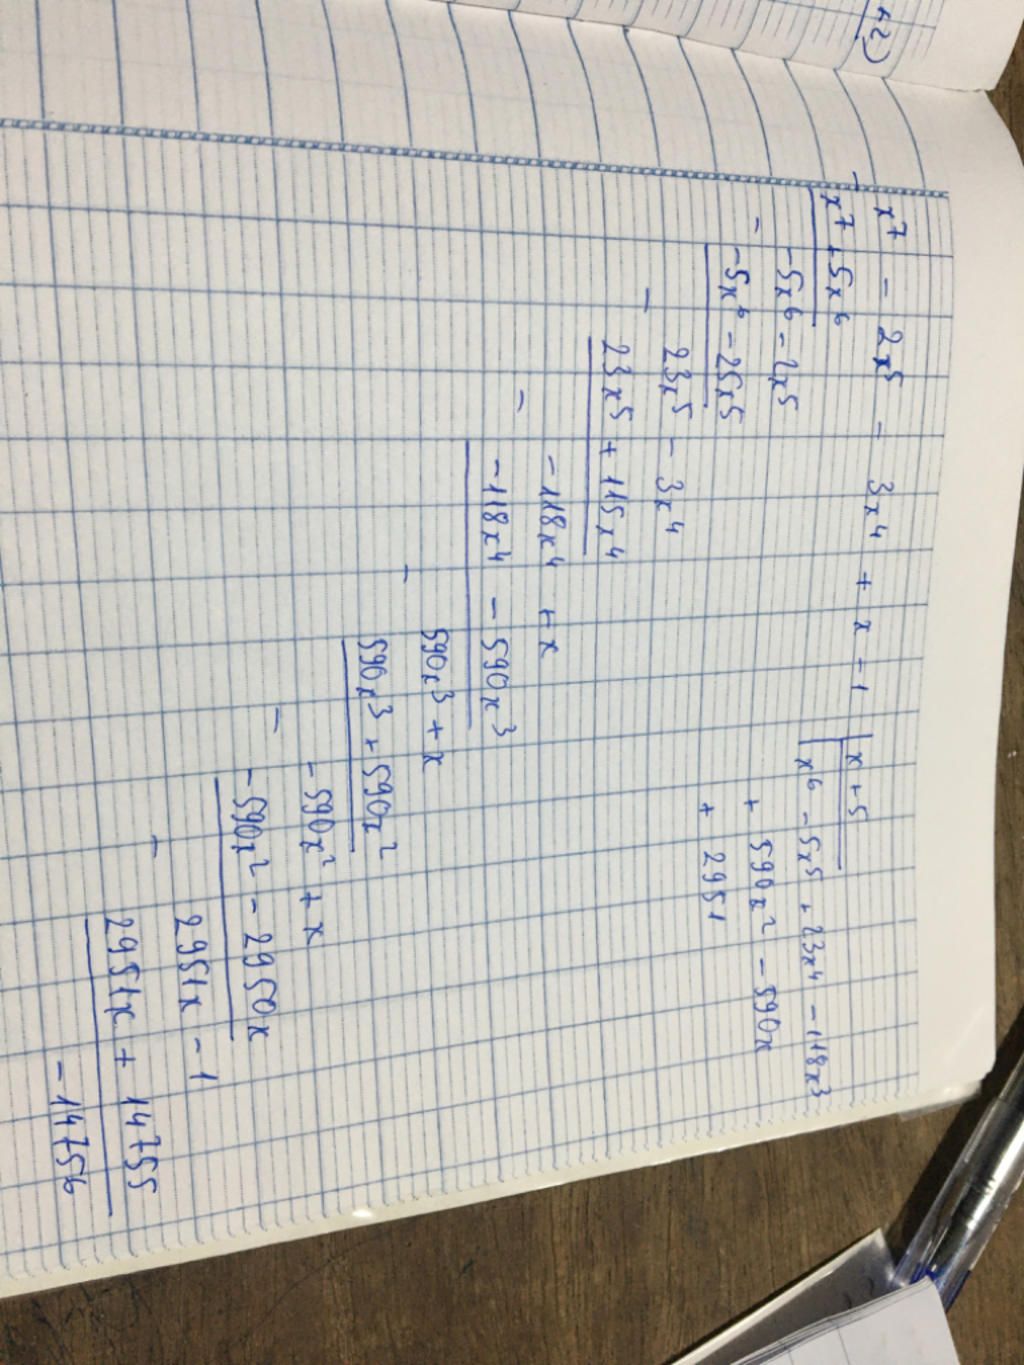 k2)
x⁷ - 2x⁵ - 3x⁴ + x - 1 | x + 5
- x⁷ + 5x⁶ | x⁶ - 5x⁵ + 23x⁴ - 118x³
-5x⁶ - 2x⁵ + 590x² - 590x
- -5x⁶ - 25x⁵ + 2951
23x⁵ - 3x⁴
- 23x⁵ + 115x⁴
-118x⁴ + x
- -118x⁴ - 590x³
590x³ + x
- 590x³ + 590x²
-590x² + x
- -590x² - 2950x
2951x - 1
- 2951x + 14755
-14756